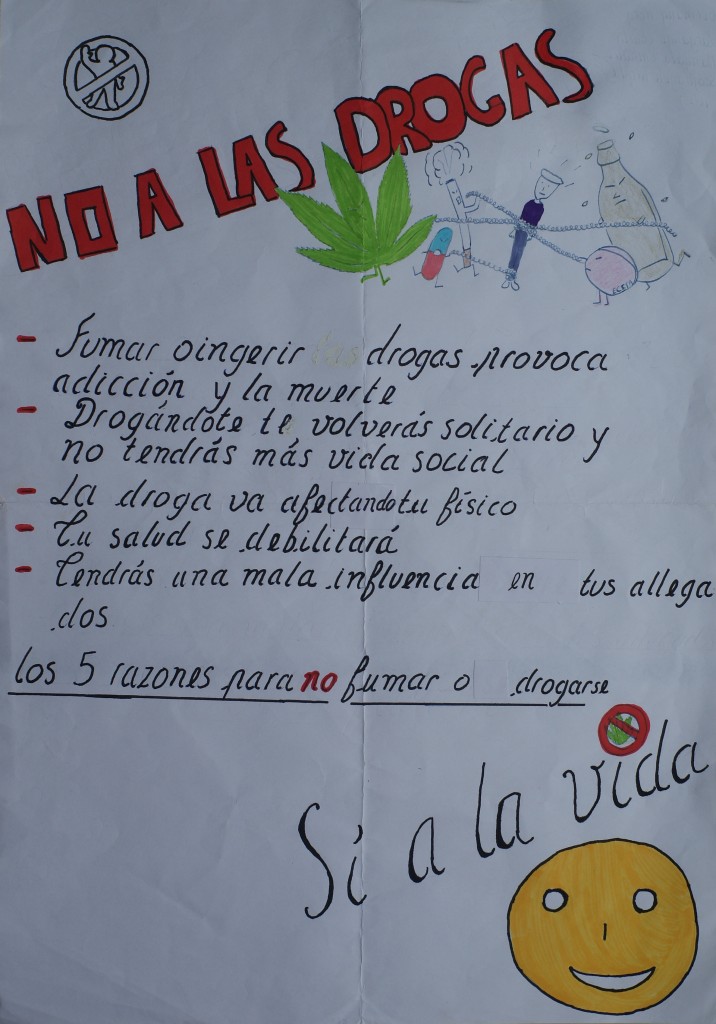 NO A LAS DROGAS
- Fumar o ingerir las drogas provoca
adicción y la muerte
- Drogándote te volverás solitario y
no tendrás más vida social
- La droga va afectando tu físico
- Tu salud se debilitará
- Tendrás una mala influencia en tus allega
dos
los 5 razones para no fumar o drogarse
Si a la vida